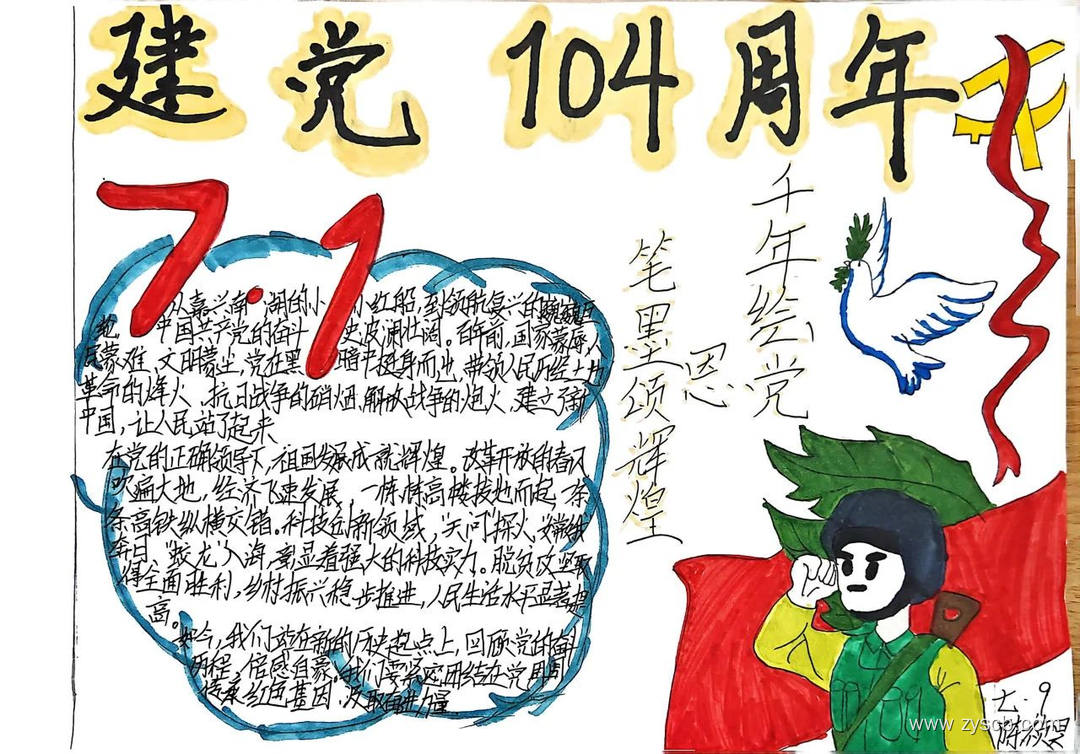 建党 104周年
7.1
千年绘党恩
笔墨颂辉煌
从嘉兴南湖的小小红船,到领航复兴的巍巍巨
轮,中国共产党的奋斗史波澜壮阔。百年前,国家蒙辱,人
民蒙难,文明蒙尘,党在黑暗中挺身而出,带领人民历经土地
革命的烽火、抗日战争的硝烟、解放战争的炮火,建立了新
中国,让人民站了起来
在党的正确领导下,祖国发展成就辉煌。改革开放的春风
吹遍大地,经济飞速发展,一栋栋高楼拔地而起,一条
条高铁纵横交错。科技创新领域,“天问”探火,“嫦娥”
奔月,“蛟龙”入海,彰显着强大的科技实力。脱贫攻坚取
得全面胜利,乡村振兴稳步推进,人民生活水平显著提
高。
如今,我们站在新的历史起点上,回顾党的奋斗
历程,倍感自豪。我们要紧密团结在党周围
传承红色基因,汲取奋进力量
七.9
www.zysch.com